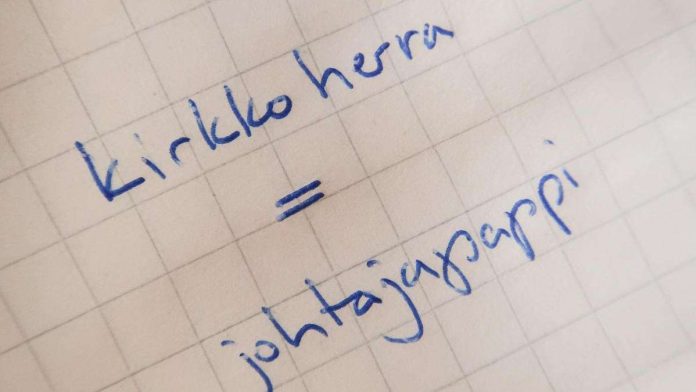 kirkkoherra
=
johtajapappi